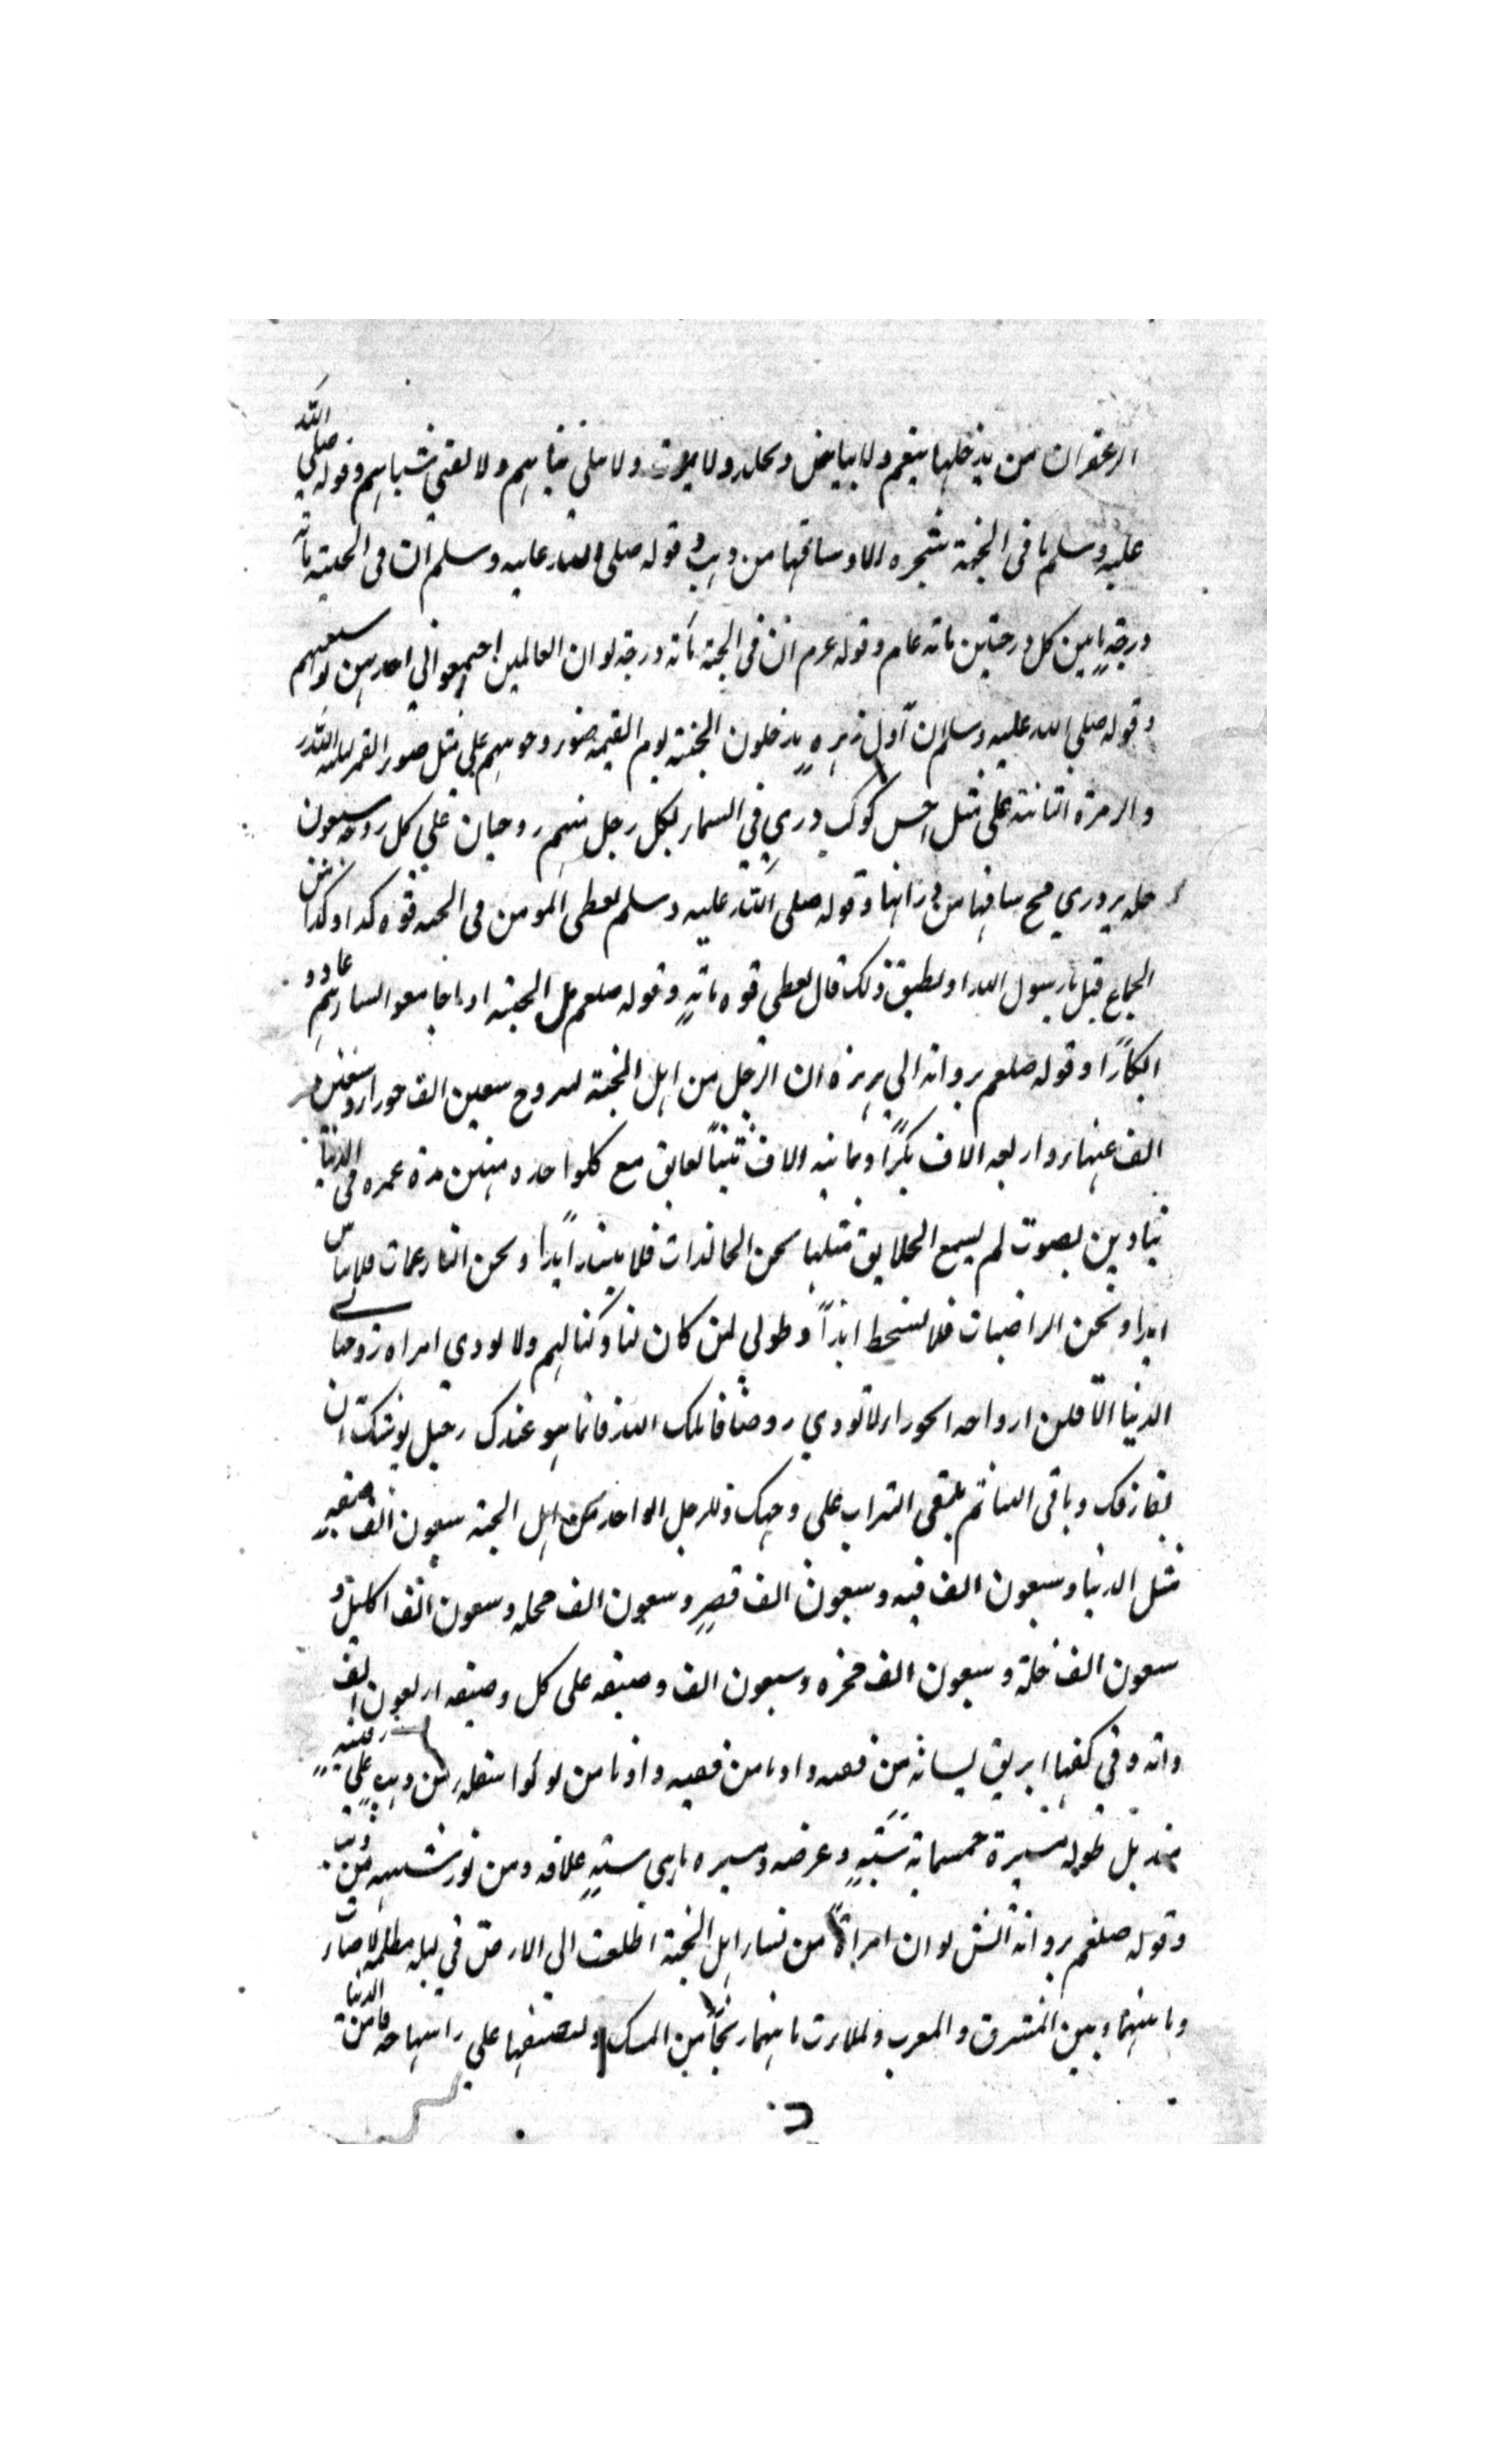 الزعفران من يدخلها ينعم ولا يباس ويخلد ولا يموت ولا يبلي ثيابهم ولا يفني شبابهم وقوله صلي الله
عليه وسلم ما في الجنة شجره الا وساقها من ذهب وقوله صلي الله عليه وسلم ان في الجنة مائة
درجة ما بين كل درجتين مائة عام وقوله عرم ان في الجنة مائة درجة لو ان العالمين اجتمعوا في احديهن لوسعتهم
وقوله صلي الله عليه وسلم ان اول زمره يدخلون الجنة يوم القيمه ضور وجوههم علي مثل صور القمر ليلة البدر
والزمرة الثانية علي مثل احسن كوكب دري في السمار لكل رجل منهم زوجتان علي كل زوجة سبعون
حله يري مخ ساقها من ورائها وقوله صلي الله عليه وسلم يعطي المومن في الجنه قوه كذا وكذا من
الجماع قيل يا رسول الله او يطيق ذلك قال يعطي قوه مائة وقوله صلعم اهل الجنة اذا جامعوا النسار هم عادوا
ابكارا وقوله صلعم بروانه ابي هريره ان الرجل من اهل الجنة ليزوج سبعين الف حورار وسبعين
الف عينار واربعه الاف بكرا وثمانيه الاف ثيبا يعانق مع كلواحده منهن مدة عمره في الدنيا
ينادين بصوت لم يسمع الخلايق مثلها نحن الخالدات فلا نبيد ابدا ونحن الناعمات فلا نباس
ابدا ونحن الراضيات فلا نسخط ابدا وطوبي لمن كان لنا وكنا لهم ولا تودي امراه زوجها في
الدنيا الا قلن ازواجه الحورار لا تودي زوجنا قاتلك الله فانما هو عندك رحيل يوشك ان
يفارقك وياتي الينا ثم يبقي التراب علي وجهك وللرجل الواحد من اهل الجنة سبعون الف
مثل الدنيا وسبعون الف قبه وسبعون الف قصر وسبعون الف حجله وسبعون الف اكليل و
سبعون الف حلة وسبعون الف وسبعون الف وصيفه علي كل وصيفه اربعون الف
وفي كفها ابريق لسانه من فضه واذنا من لولوا اسفله من ذهب علي
منديل طوله مسيرة خمسمائة سنة وعرضه مسيره سنة من نور من
وقوله صلعم بروانه انس لو ان امراة من نسار اهل الجنة اطلعت الي الارض في ليله مظلمه لاضارت
ما بينهما وبين المشرق والمغرب ولملارت ما بينهما ريحا من المسك ولنصيفها علي راسها خير من الدنيا